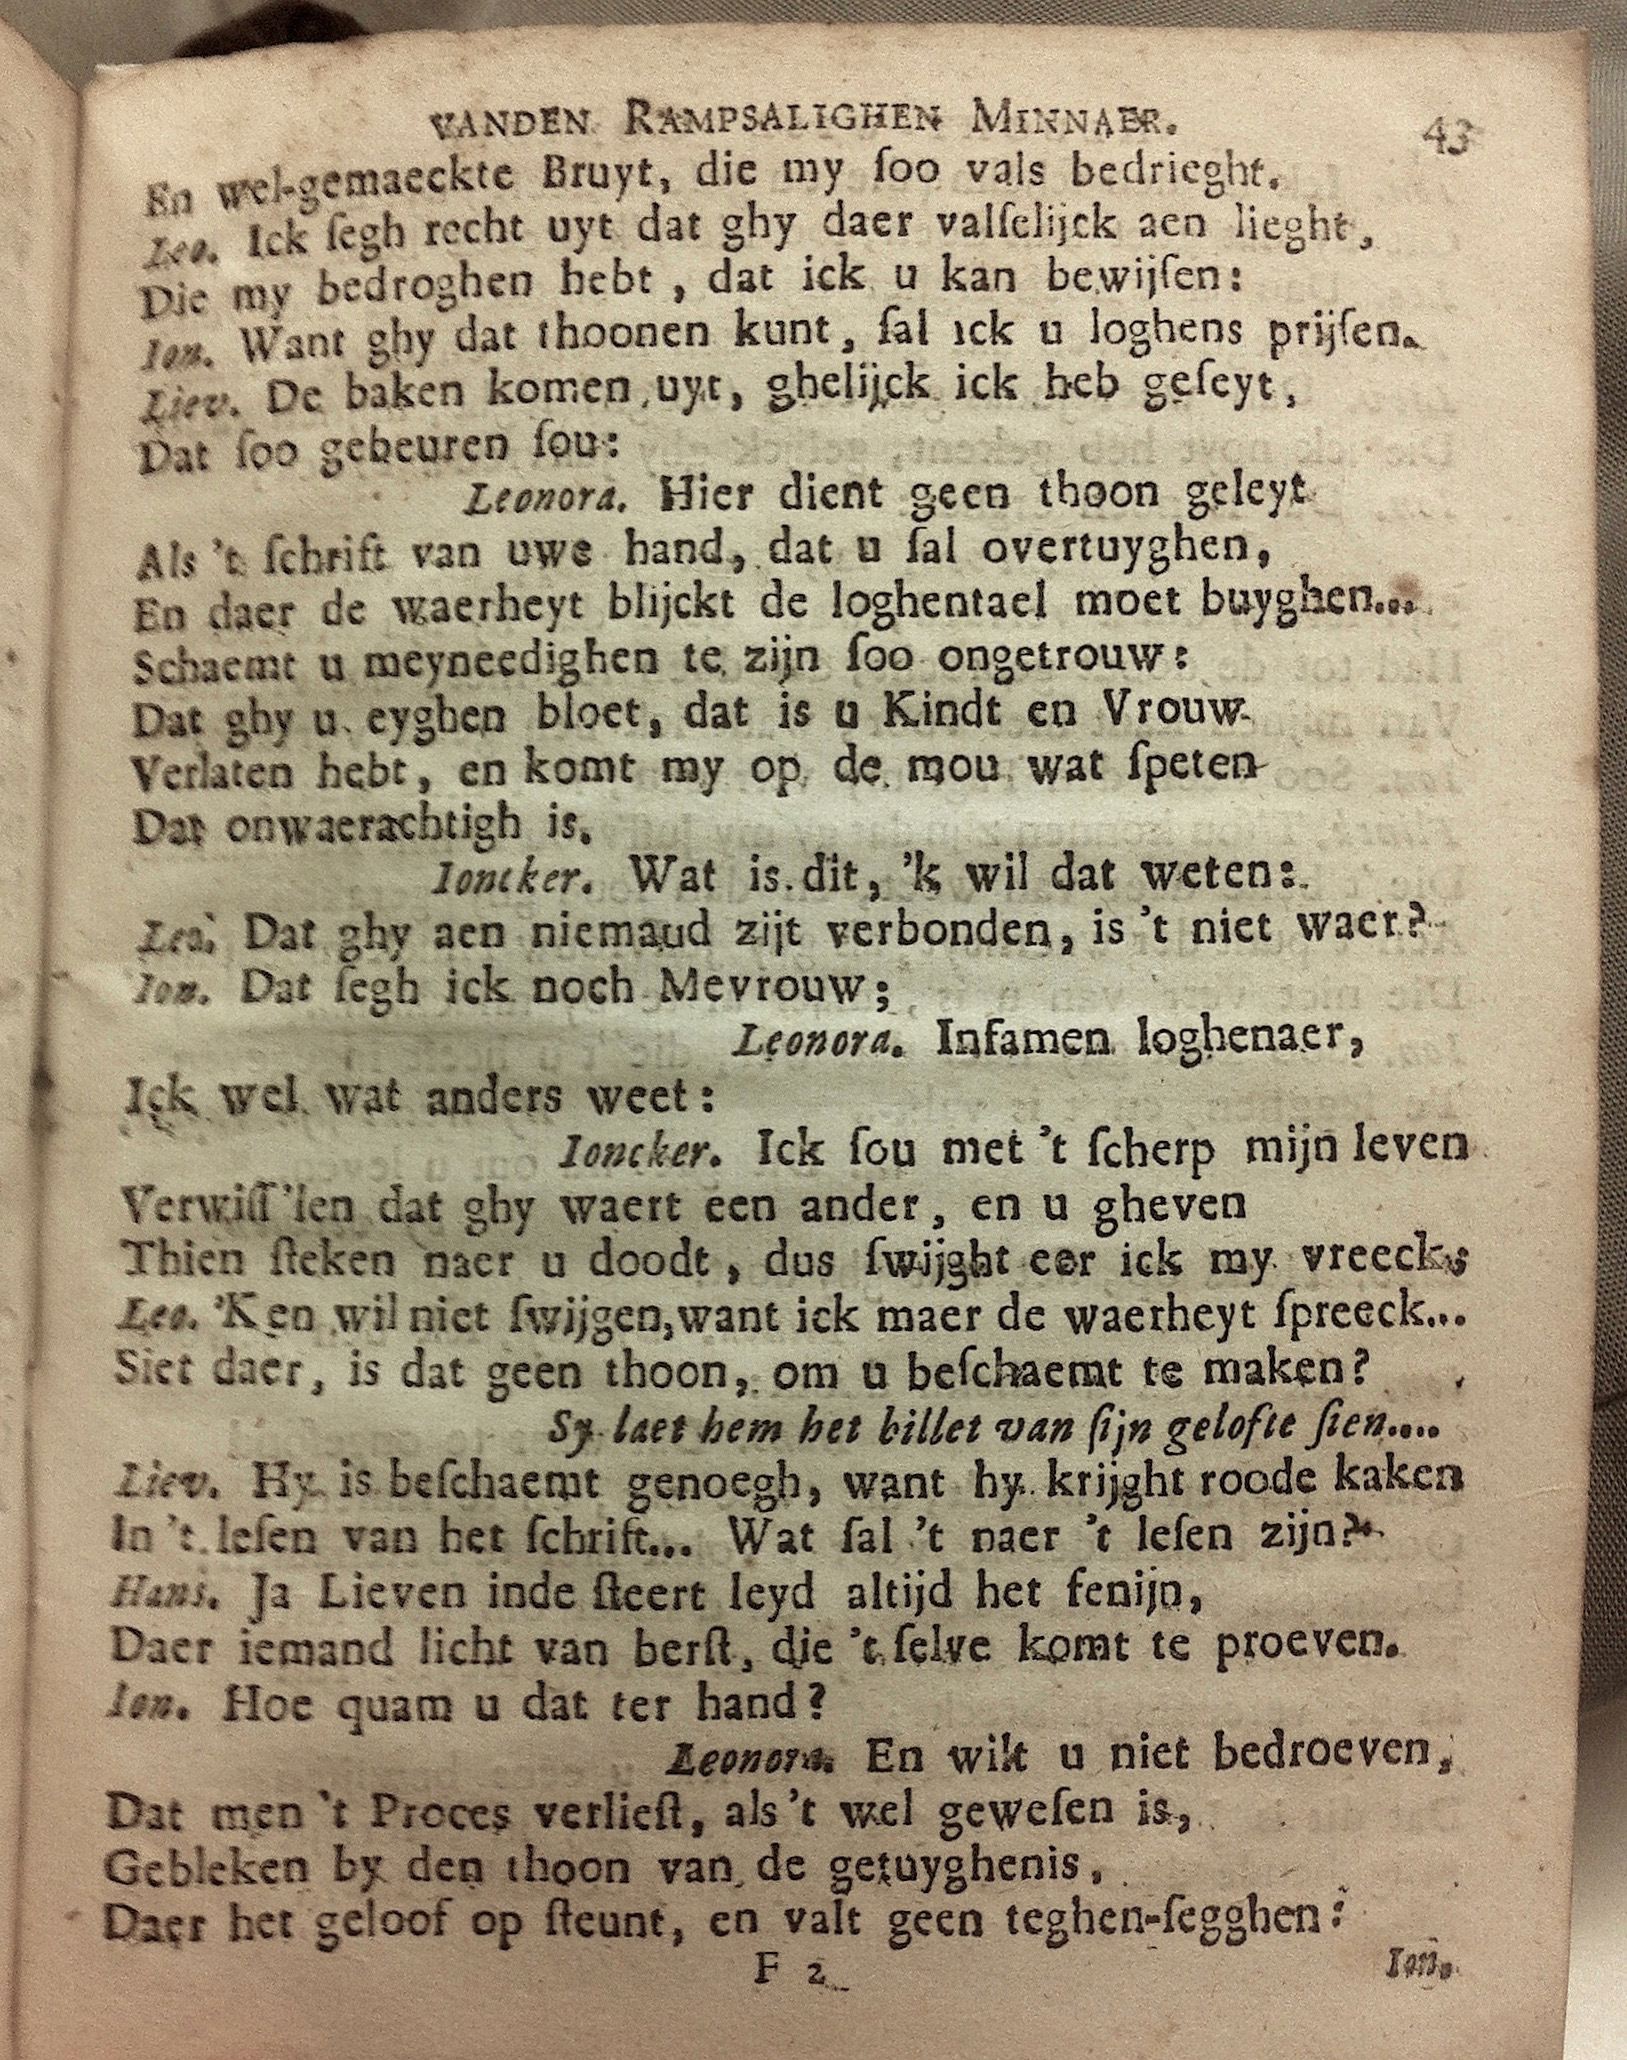 VANDEN RAMPSALIGHEN MINNAER. 43
En wel-gemaeckte Bruyt, die my ſoo vals bedrieght.
Leo. Ick ſegh recht uyt dat ghy daer valſelijck aen lieght,
Die my bedroghen hebt, dat ick u kan bewijſen:
Ion. Want ghy dat thoonen kunt, ſal ick u loghens prijſen.
Liev. De baken komen uyt, ghelijck ick heb geſeyt,
Dat ſoo gebeuren ſou:
Leonora. Hier dient geen thoon geleyt
Als 't ſchrift van uwe hand, dat u ſal overtuyghen,
En daer de waerheyt blijckt de loghentael moet buyghen...
Schaemt u meyneedighen te zijn ſoo ongetrouw:
Dat ghy u eyghen bloet, dat is u Kindt en Vrouw
Verlaten hebt, en komt my op de mou wat ſpeten
Dat onwaerachtigh is.
Ioncker. Wat is dit, 'k wil dat weten:
Leo. Dat ghy aen niemaud zijt verbonden, is 't niet waer?
Ion. Dat ſegh ick noch Mevrouw;
Leonora. Infamen loghenaer,
Ick wel wat anders weet:
Ioncker. Ick ſou met 't ſcherp mijn leven
Verwiſſ'len dat ghy waert een ander, en u gheven
Thien ſteken naer u doodt, dus ſwijght eer ick my vreeck:
Leo. 'Ken wil niet ſwijgen, want ick maer de waerheyt ſpreeck...
Siet daer, is dat geen thoon, om u beſchaemt te maken?
Sy laet hem het billet van ſijn gelofte ſien....
Liev. Hy is beſchaemt genoegh, want hy krijght roode kaken
In 't leſen van het ſchrift... Wat ſal 't naer 't leſen zijn?
Hans. Ja Lieven inde ſteert leyd altijd het fenijn,
Daer iemand licht van berſt, die 't ſelve komt te proeven.
Ion. Hoe quam u dat ter hand?
Leonora. En wilt u niet bedroeven,
Dat men 't Proces verlieſt, als 't wel geweſen is,
Gebleken by den thoon van de getuyghenis,
Daer het geloof op ſteunt, en valt geen teghen-ſegghen:
F 2 Ion.